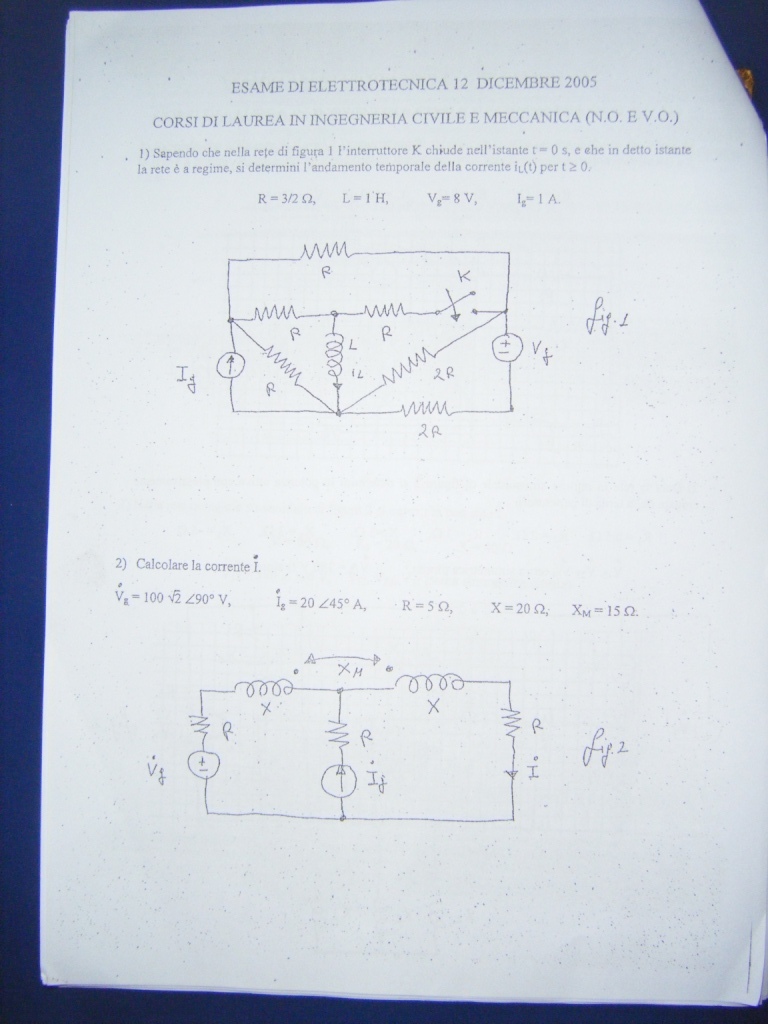 ESAME DI ELETTROTECNICA 12 DICEMBRE 2005
CORSI DI LAUREA IN INGEGNERIA CIVILE E MECCANICA (N.O. E V.O.)
1) Sapendo che nella rete di figura 1 l'interruttore K chiude nell'istante t = 0 s, e che in detto istante
la rete è a regime, si determini l'andamento temporale della corrente iL(t) per t ≥ 0.
R = 3/2 Ω, L = 1 H, Vg= 8 V, Ig= 1 A.
R
K
R
R
fig. 1
L
iL
Ig
R
2R
Vg
2R
2) Calcolare la corrente İ.
V̇g = 100 √2 ∠90° V, İg = 20 ∠45° A, R = 5 Ω, X = 20 Ω, XM = 15 Ω.
XM
X
X
R
R
R
fig. 2
V̇g
İg
İ